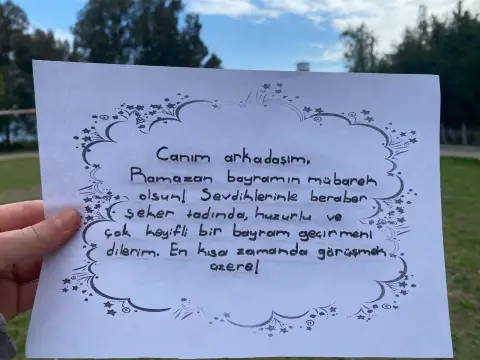 Canım arkadaşım,
Ramazan bayramın mübarek
olsun! Sevdiklerinle beraber
şeker tadında, huzurlu ve
çok keyifli bir bayram geçirmeni
dilerim. En kısa zamanda görüşmek
üzere!